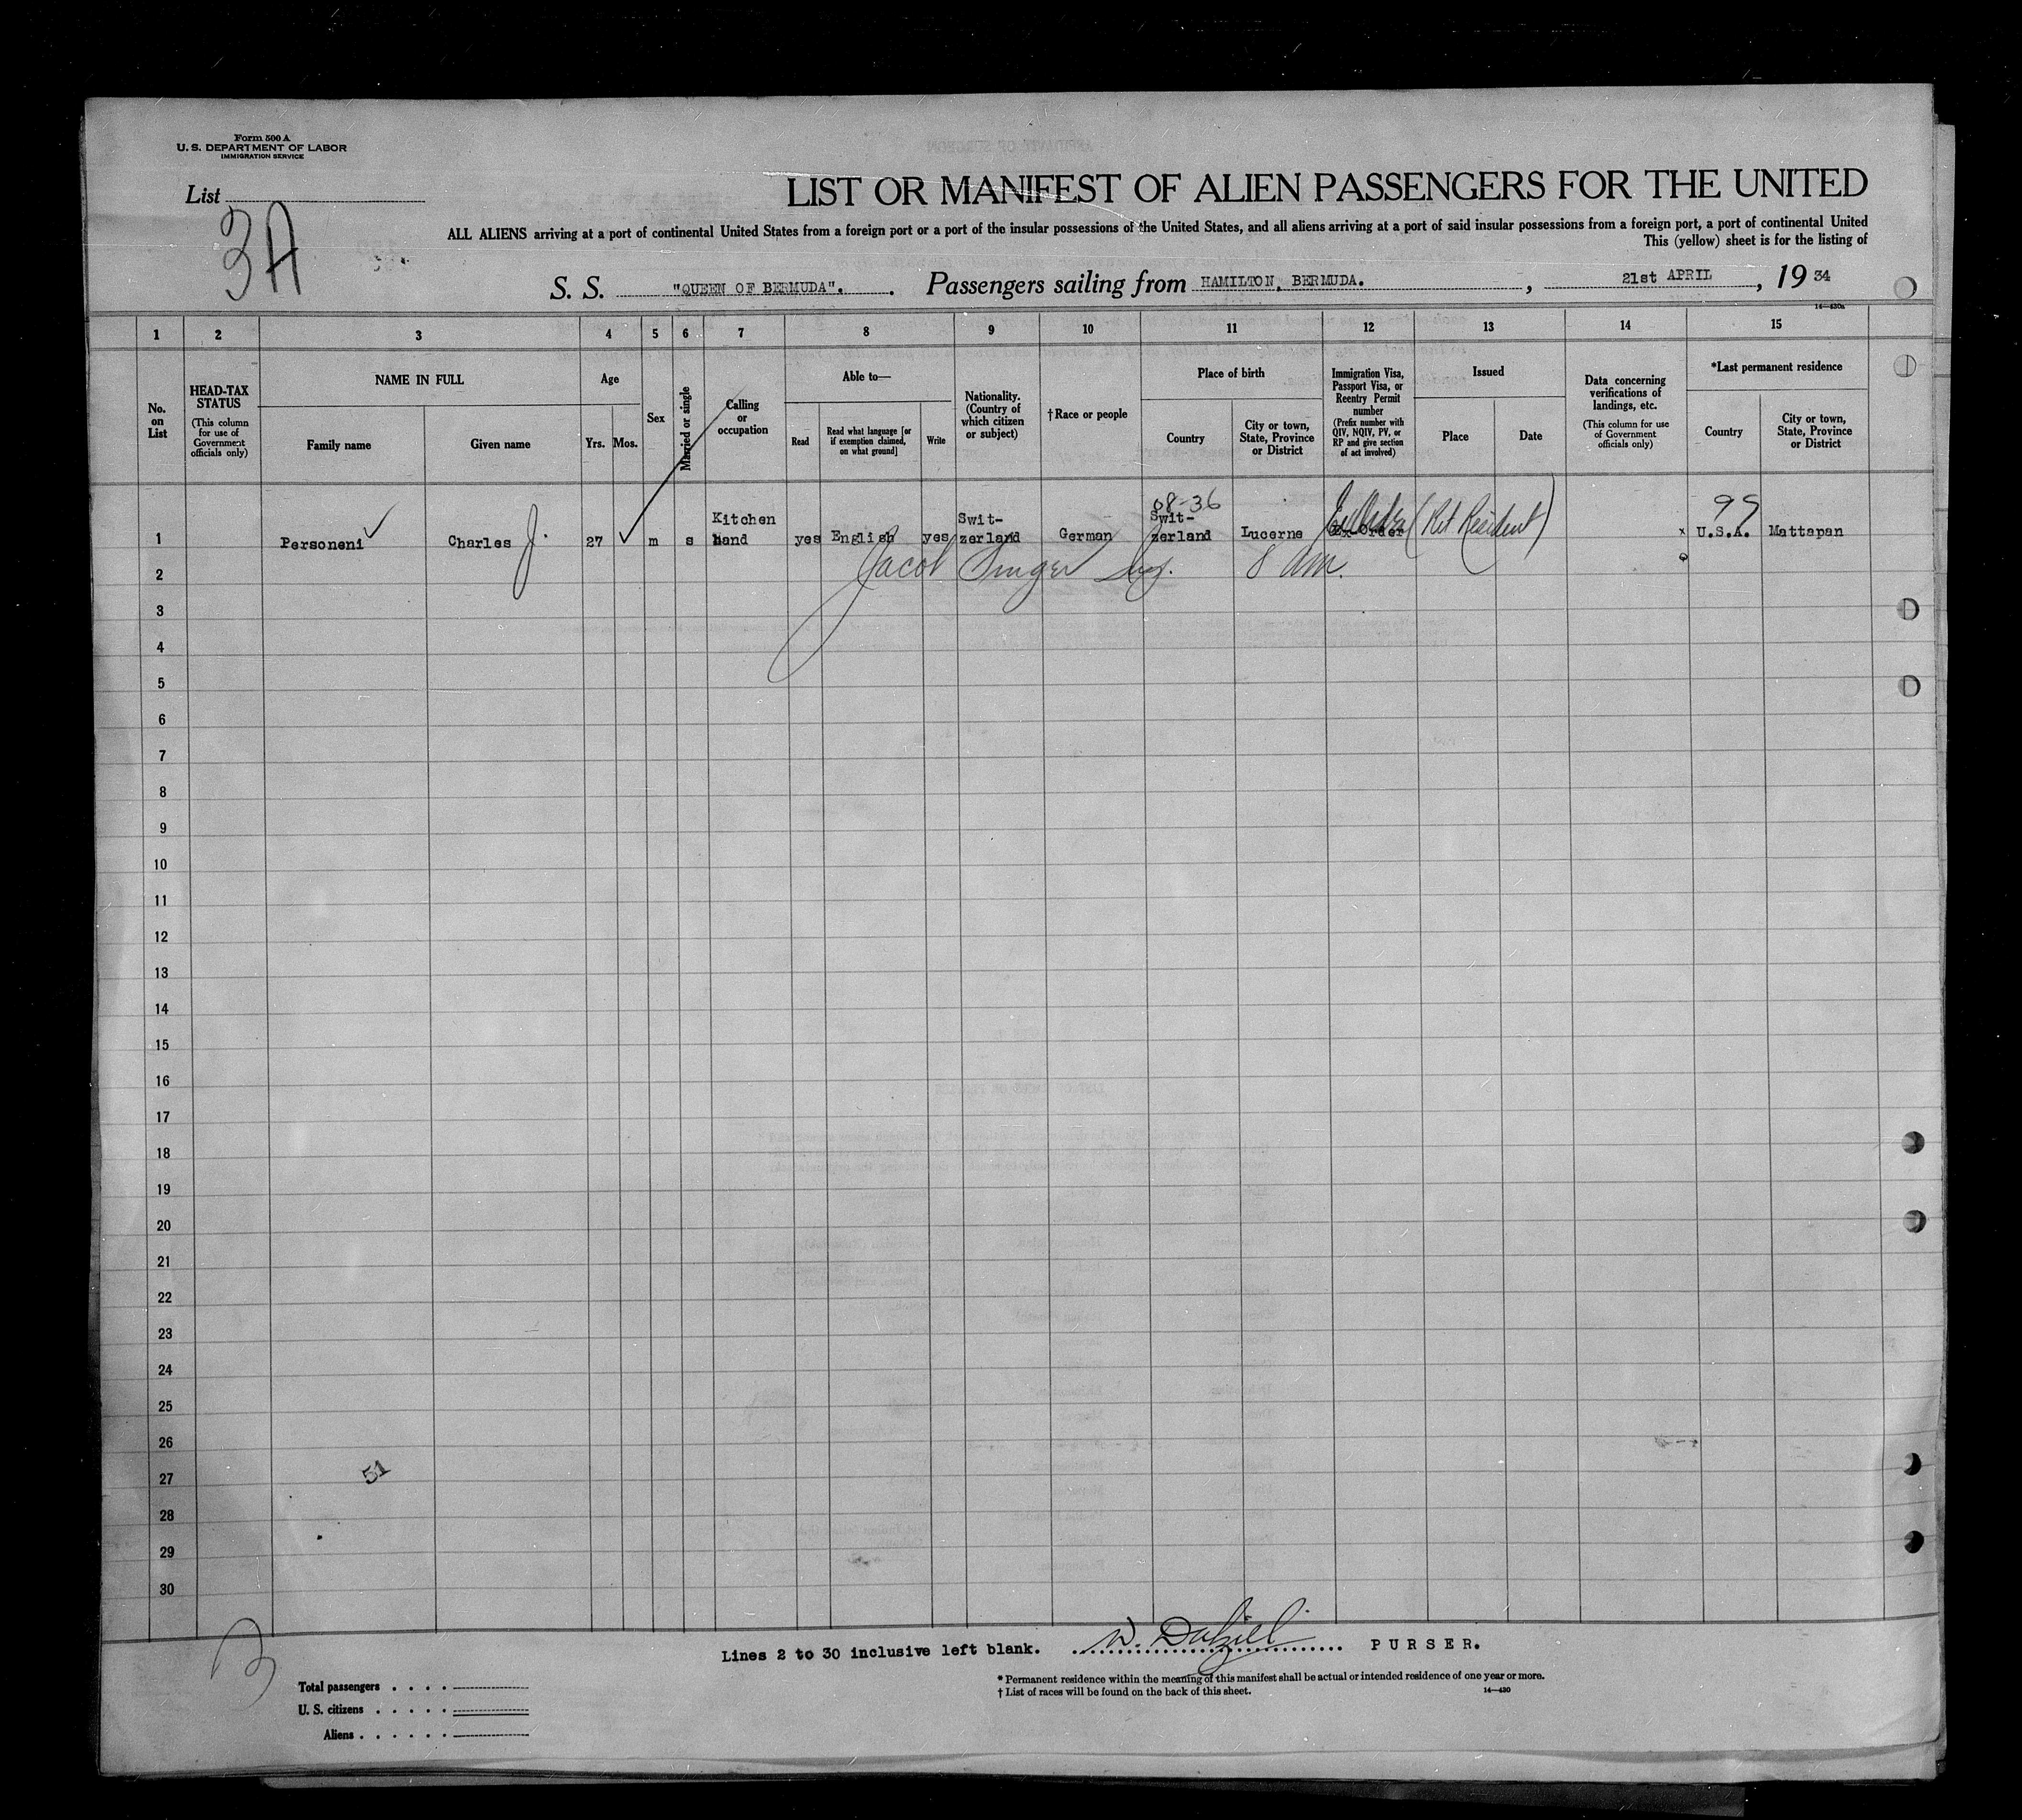 Form 500 A
U. S. DEPARTMENT OF LABOR
IMMIGRATION SERVICE
List
3A
LIST OR MANIFEST OF ALIEN PASSENGERS FOR THE UNITED
ALL ALIENS arriving at a port of continental United States from a foreign port or a port of the insular possessions of the United States, and all aliens arriving at a port of said insular possessions from a foreign port, a port of continental United
This (yellow) sheet is for the listing of
S. S. "QUEEN OF BERMUDA". Passengers sailing from HAMILTON, BERMUDA. , 21st APRIL , 19 34
14—430a
1 2 3 4 5 6 7 8 9 10 11 12 13 14 15
No. on List
HEAD-TAX STATUS
(This column for use of Government officials only)
NAME IN FULL
Family name
Given name
Age
Yrs. Mos.
Sex
Married or single
Calling or occupation
Able to—
Read
Read what language [or if exemption claimed, on what ground]
Write
Nationality. (Country of which citizen or subject)
†Race or people
Place of birth
Country
City or town, State, Province or District
Immigration Visa, Passport Visa, or Reentry Permit number
(Prefix number with QIV, NQIV, PV, or RP and give section of act involved)
Issued
Place
Date
Data concerning verifications of landings, etc.
(This column for use of Government officials only)
*Last permanent residence
Country
City or town, State, Province or District
08-36
99
1 Personeni Charles J. 27 m s Kitchen hand yes English yes Swit-zerland German Swit-zerland Lucerne Ex Order (Ret Resident) x U.S.A. Mattapan
2 Jacob Singer Insp. 8 am.
3
4
5
6
7
8
9
10
11
12
13
14
15
16
17
18
19
20
21
22
23
24
25
26
27
51
28
29
30
Lines 2 to 30 inclusive left blank. W. Dalziel PURSER.
* Permanent residence within the meaning of this manifest shall be actual or intended residence of one year or more.
† List of races will be found on the back of this sheet.
14—430
Total passengers
U. S. citizens
Aliens